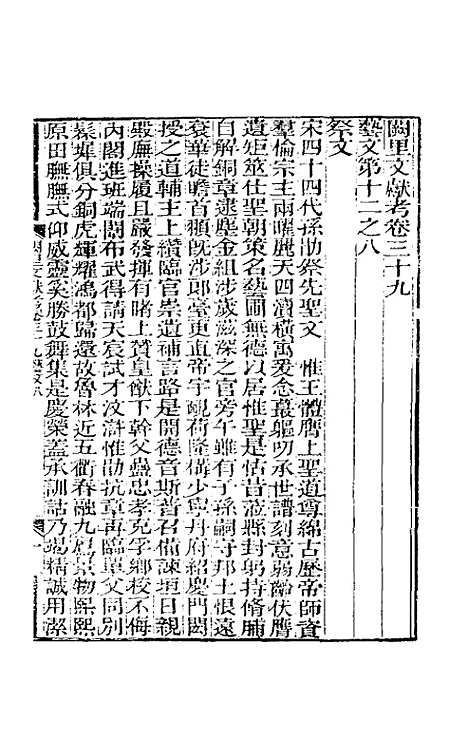 闕里文獻考卷三十九
藝文第十二之八
祭文
宋四十四代孫勛祭先聖文　惟王體膺上聖道尊綿古歷帝師資
羣倫宗主兩曜麗天四瀆橫寓爰念蕞軀叨承世譜刻意弱齡伏膺
遺矩筮仕聖朝策名藝圃無德以居惟聖是怙昔蒞縣封躬持脩脯
自解銅章逮塵金組涉歲滋深之官旁午雖有子孫嗣守邦土恨遠
袞華徒瞻首頫旣涉郎臺更直帝宇覗荷隆構少寧丹府紹慶門閎
授之道輔主上纘臨官崇遺補言路是開德音斯普召備諫垣日親
殿廡操履且嚴發揮有睹上贊皇猷下幹父蠱忠孝克孚鄉校不侮
內閣進班端闈布武得請天宸試才汶滸惟勛抗章再臨單父同別
鬃墀俱分銅虎輝耀鴻都歸還故魯林近五衢春融九扈景物熙熙
原田膴膴式仰威靈奚勝鼓舞集是慶榮蓋承訓詁乃竭精誠用潔